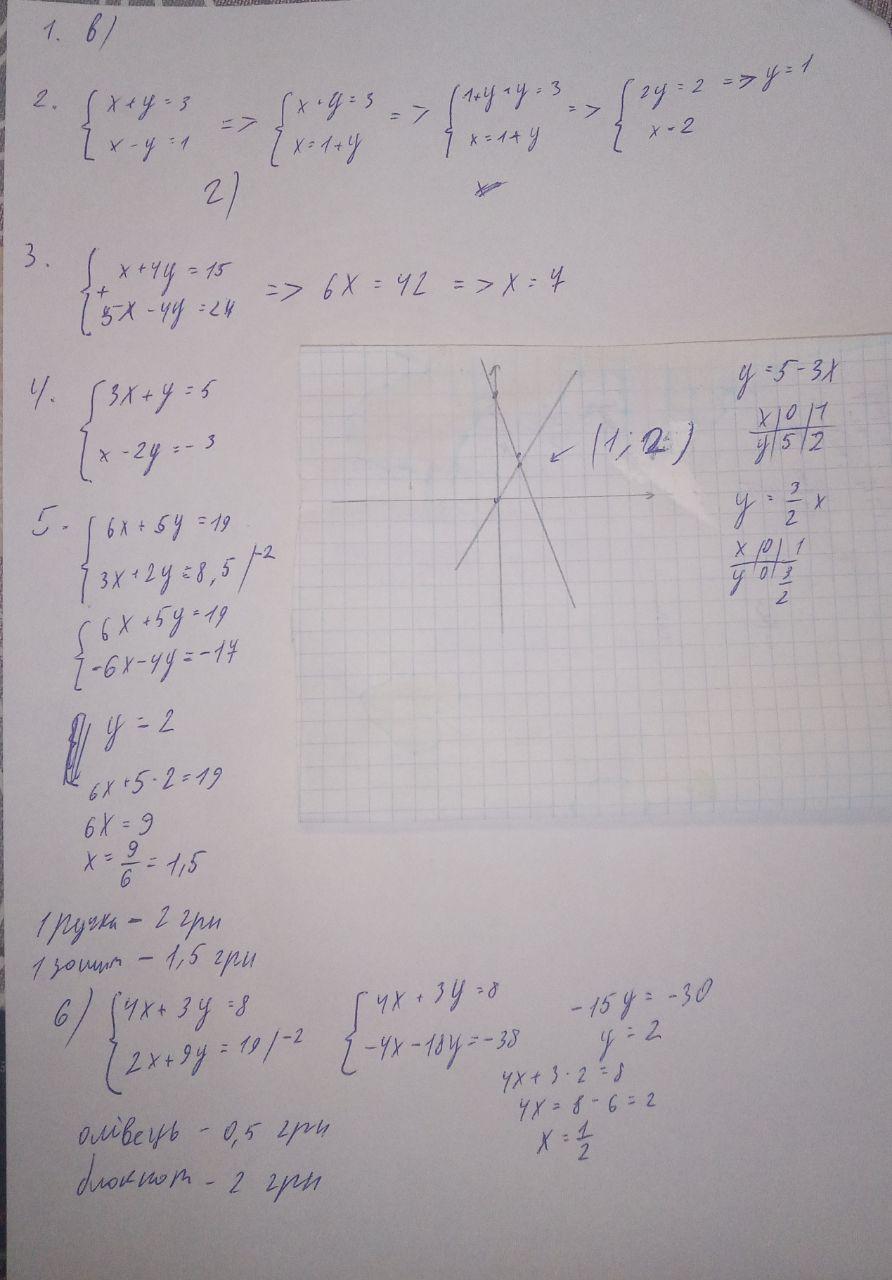 1. в)
2. { x+y=3 => { x+y=3 => { 1+y+y=3 => { 2y=2 => y=1
x-y=1 x=1+y x=1+y x=2
2)
3. { x+4y=15
+ 5x-4y=24 => 6x=42 => x=7
4. { 3x+y=5
x-2y=-3
y=5-3x
x|0|1
y|5|2
(1;2)
y=3/2 x
x|0|1
y|0|3/2
5. { 6x+5y=19
3x+2y=8,5 /-2
{ 6x+5y=19
-6x-4y=-17
y=2
6x+5·2=19
6x=9
x=9/6=1,5
1 ручка - 2 грн
1 зошит - 1,5 грн
6) { 4x+3y=8
2x+9y=19 /-2
{ 4x+3y=8
-4x-18y=-38
-15y=-30
y=2
4x+3·2=8
4x=8-6=2
x=1/2
олівець - 0,5 грн
блокнот - 2 грн